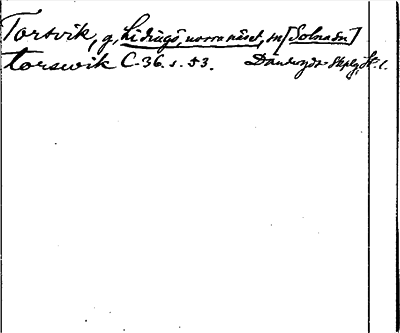 Torsvik, g, Lidingö, norra näset, sn [Solna sn]
torswik C-36. s. 53. Danderyds Skplg, St. l.